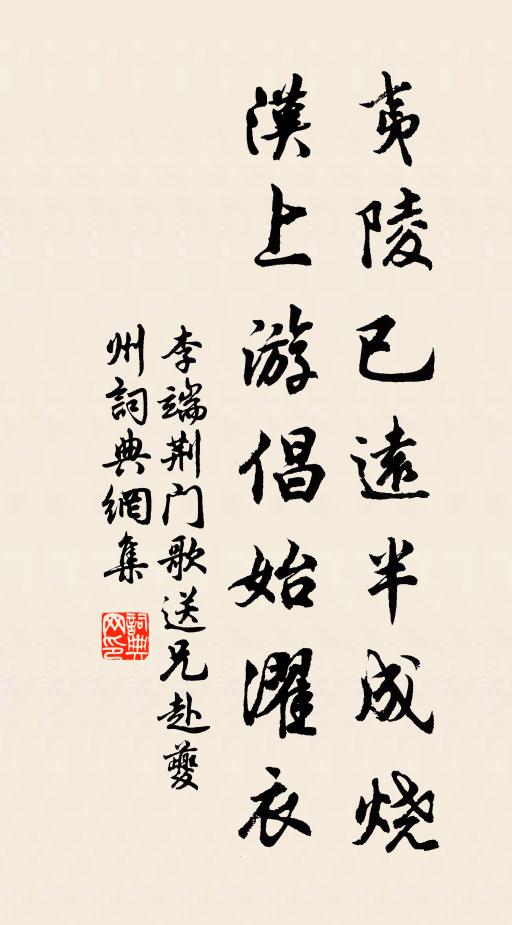 夷陵已遠半成烧
漢上游倡始濯衣
李端荆门歌送兄赴夔
州詞典網集
詞典网印